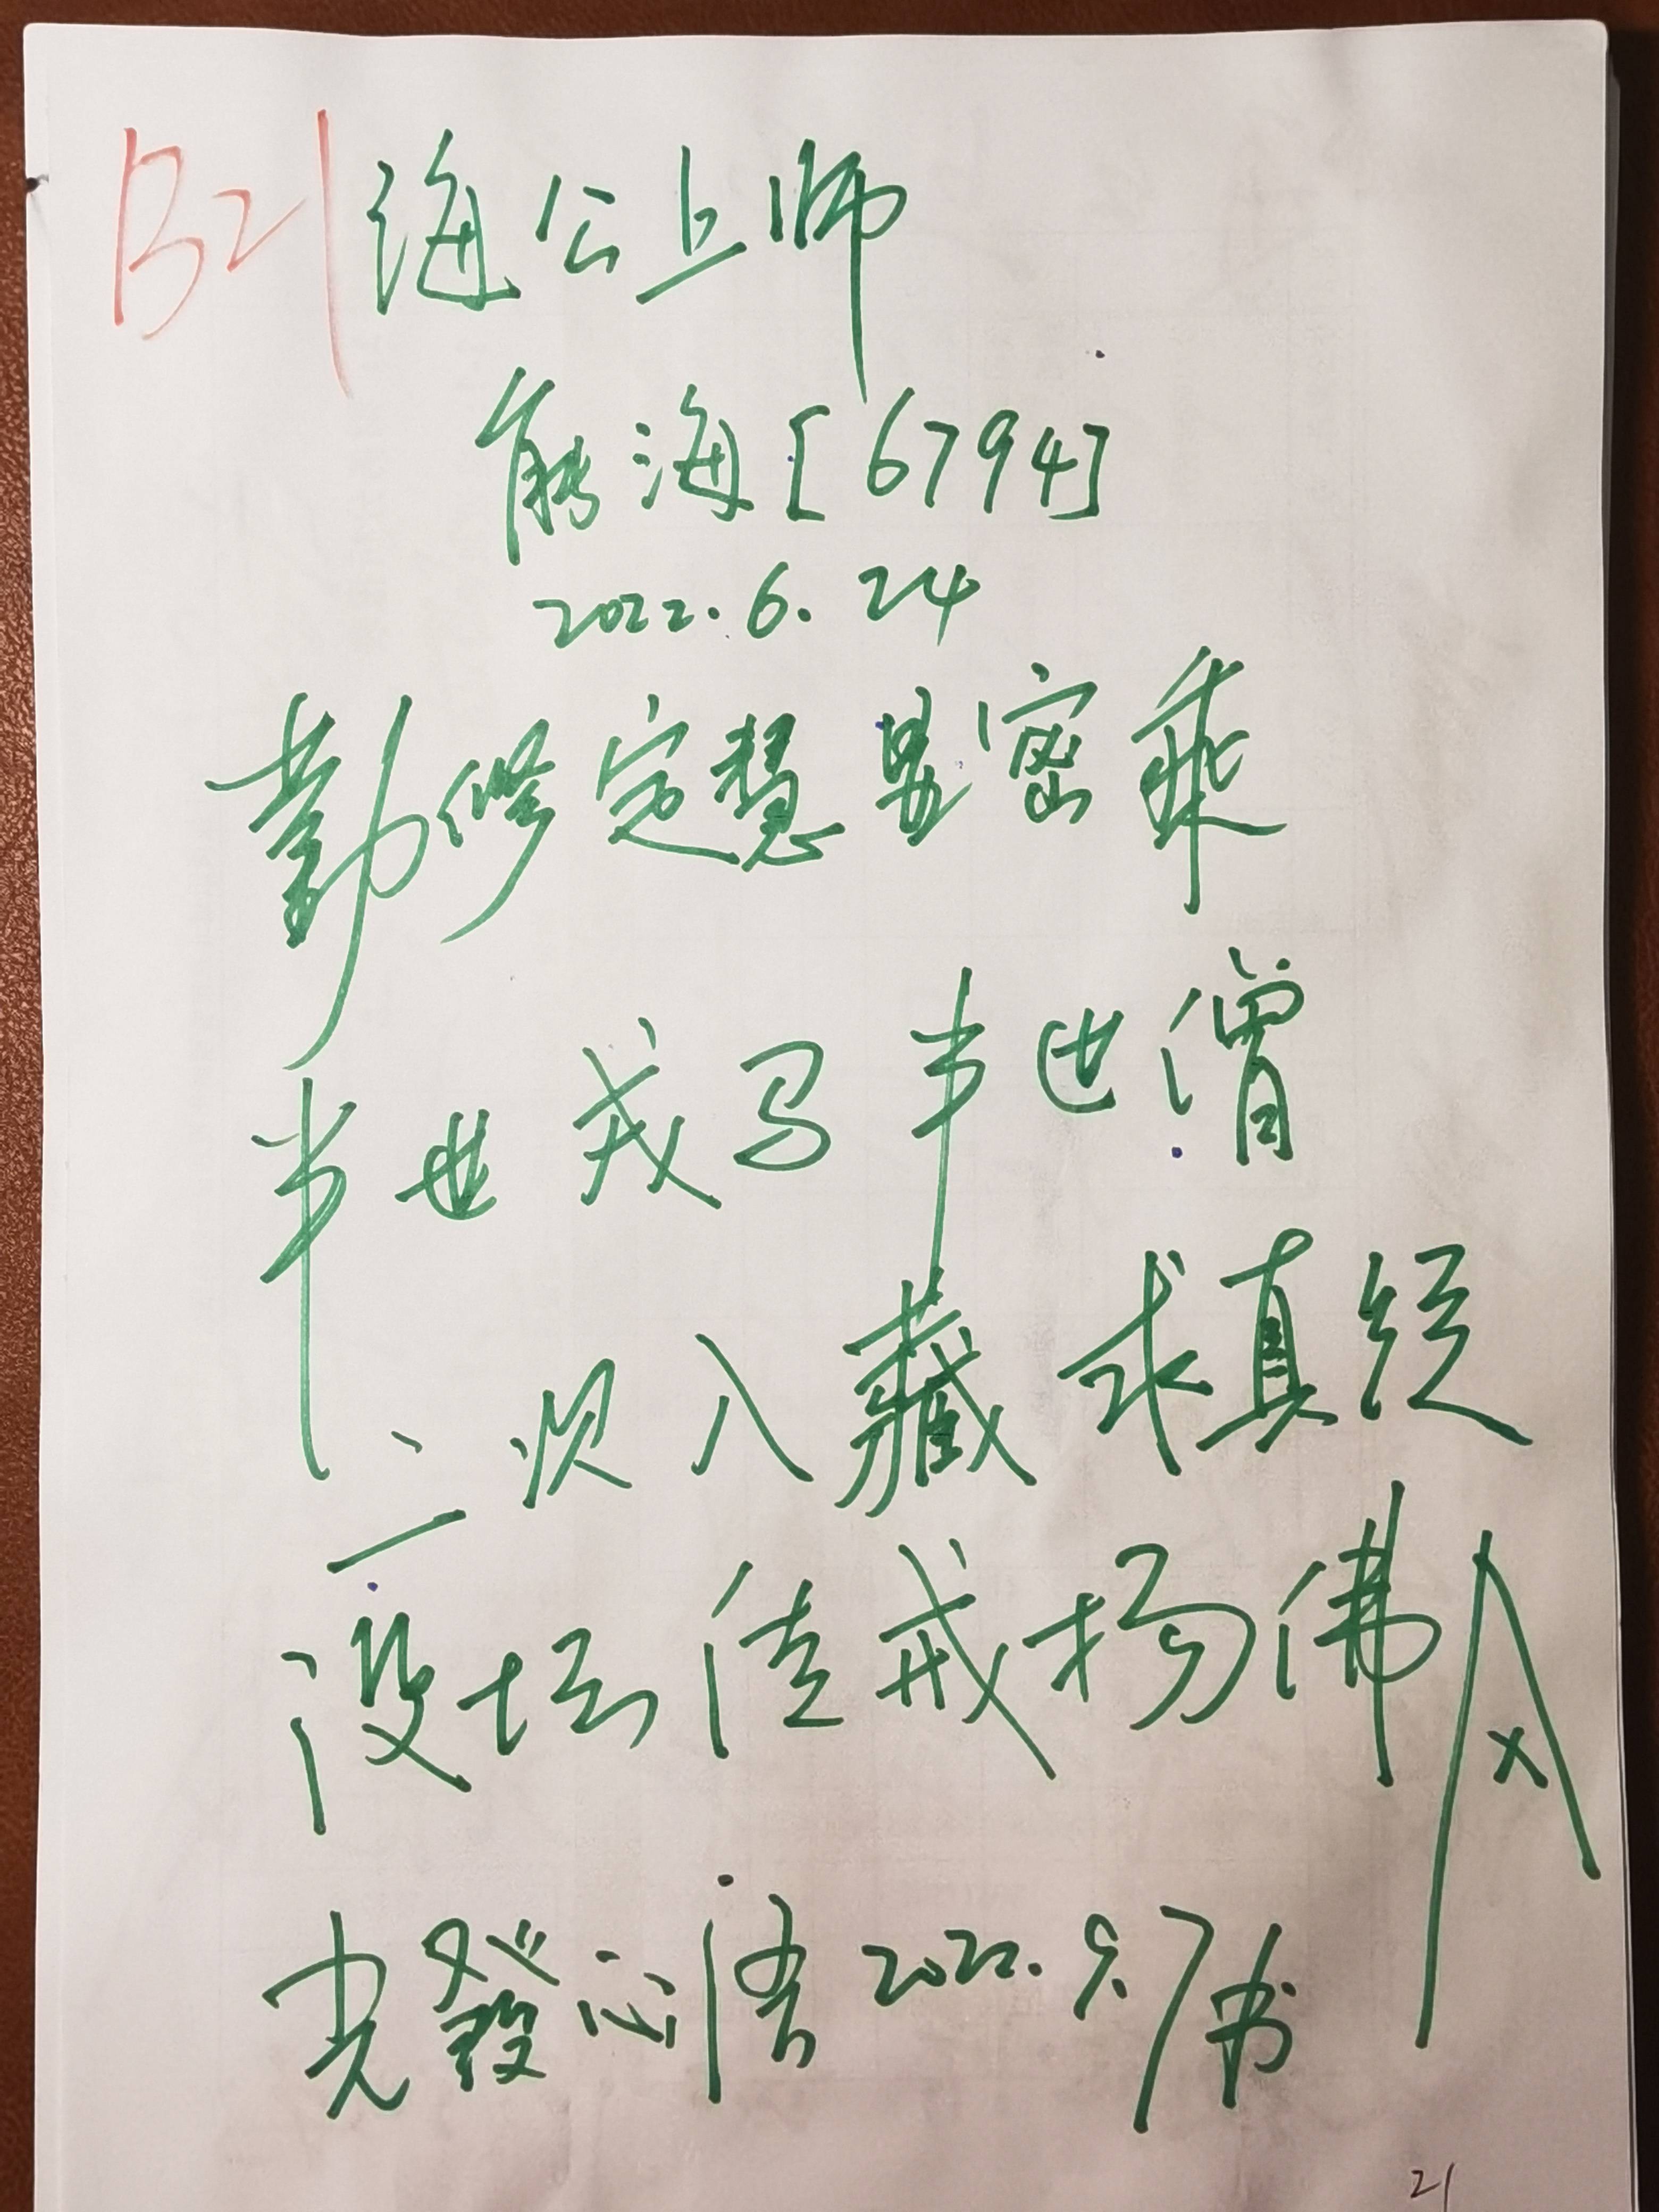 B21 海公上师
能海[6794]
2022.6.24
勤修定慧显密乘
半世戎马半世僧
二次入藏求真经
设坛传戒扬佛风
光发心悟 2022.9.7书
21